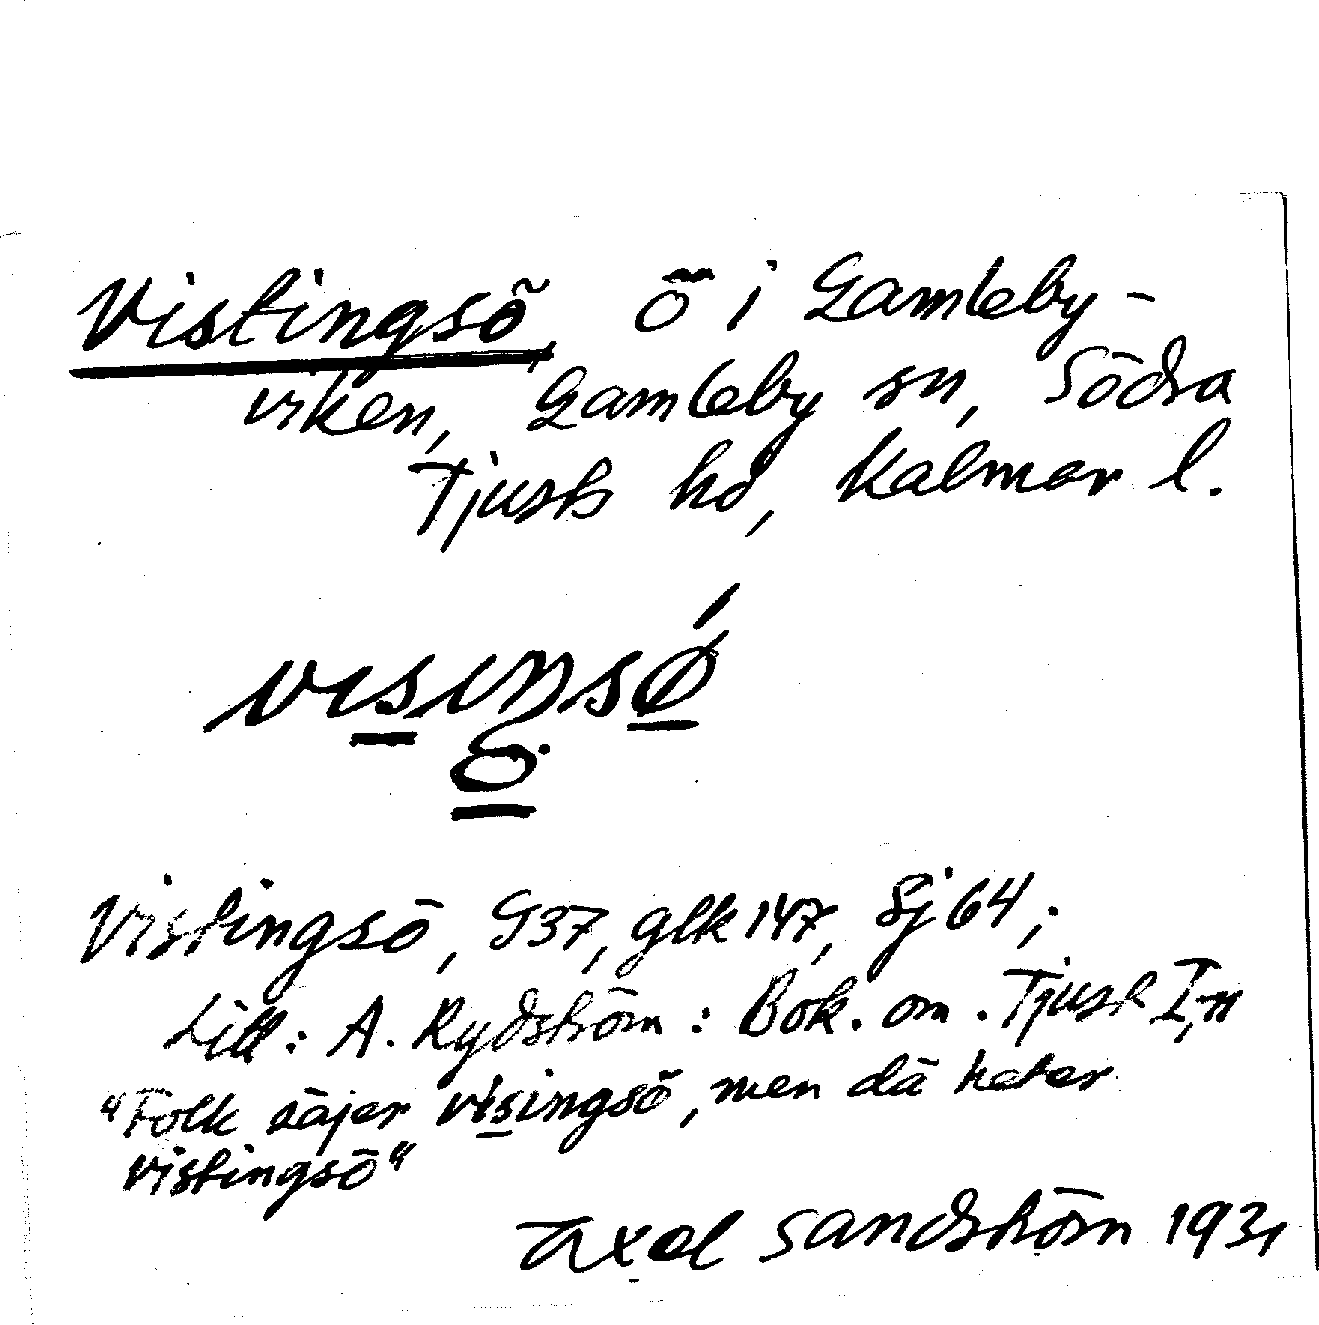 Vistingsö, ö i Gamleby-
viken, Gamleby sn, Södra
Tjusts hd, Kalmar l.
visiŋsø
Vistingsö, G37, glk 147, Sj 64;
Litt: A. Rydström: Bok. om. Tjust I, II
"Folk säjer visingsö, men dä heter
vistingsö"
Axel Sandström 1931